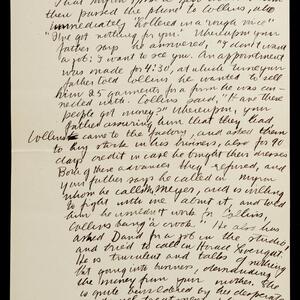 then passed the phone to Collins, who
immediately "hollered in a rough voice"
"I've got nothing for you." Whereupon your
father says he answered, "I don't want
a job: I want to see you. An appointment
was made for 4:30, at which time your
father told Collins he wanted to sell
him 25 garments for a firm he was con-
nected with. Collins said, "Have these
people got money?" Whereupon, your
father assured him that they had.
Collins came to the factory, and asked them
to buy stock in his business, also for 90
days credit in case he bought their dresses
Both these advances they refused, and
your father says he called in
whom he calls Meyer, and is willing
to fight with me about it, and told
him he wouldn't work for Collins,
Collins being a crook." He also has
asked David for a job in the studio,
and tried to call in Horace
He is truculent and talks of nothing
but going into business,
the money from your mother. She
is quite